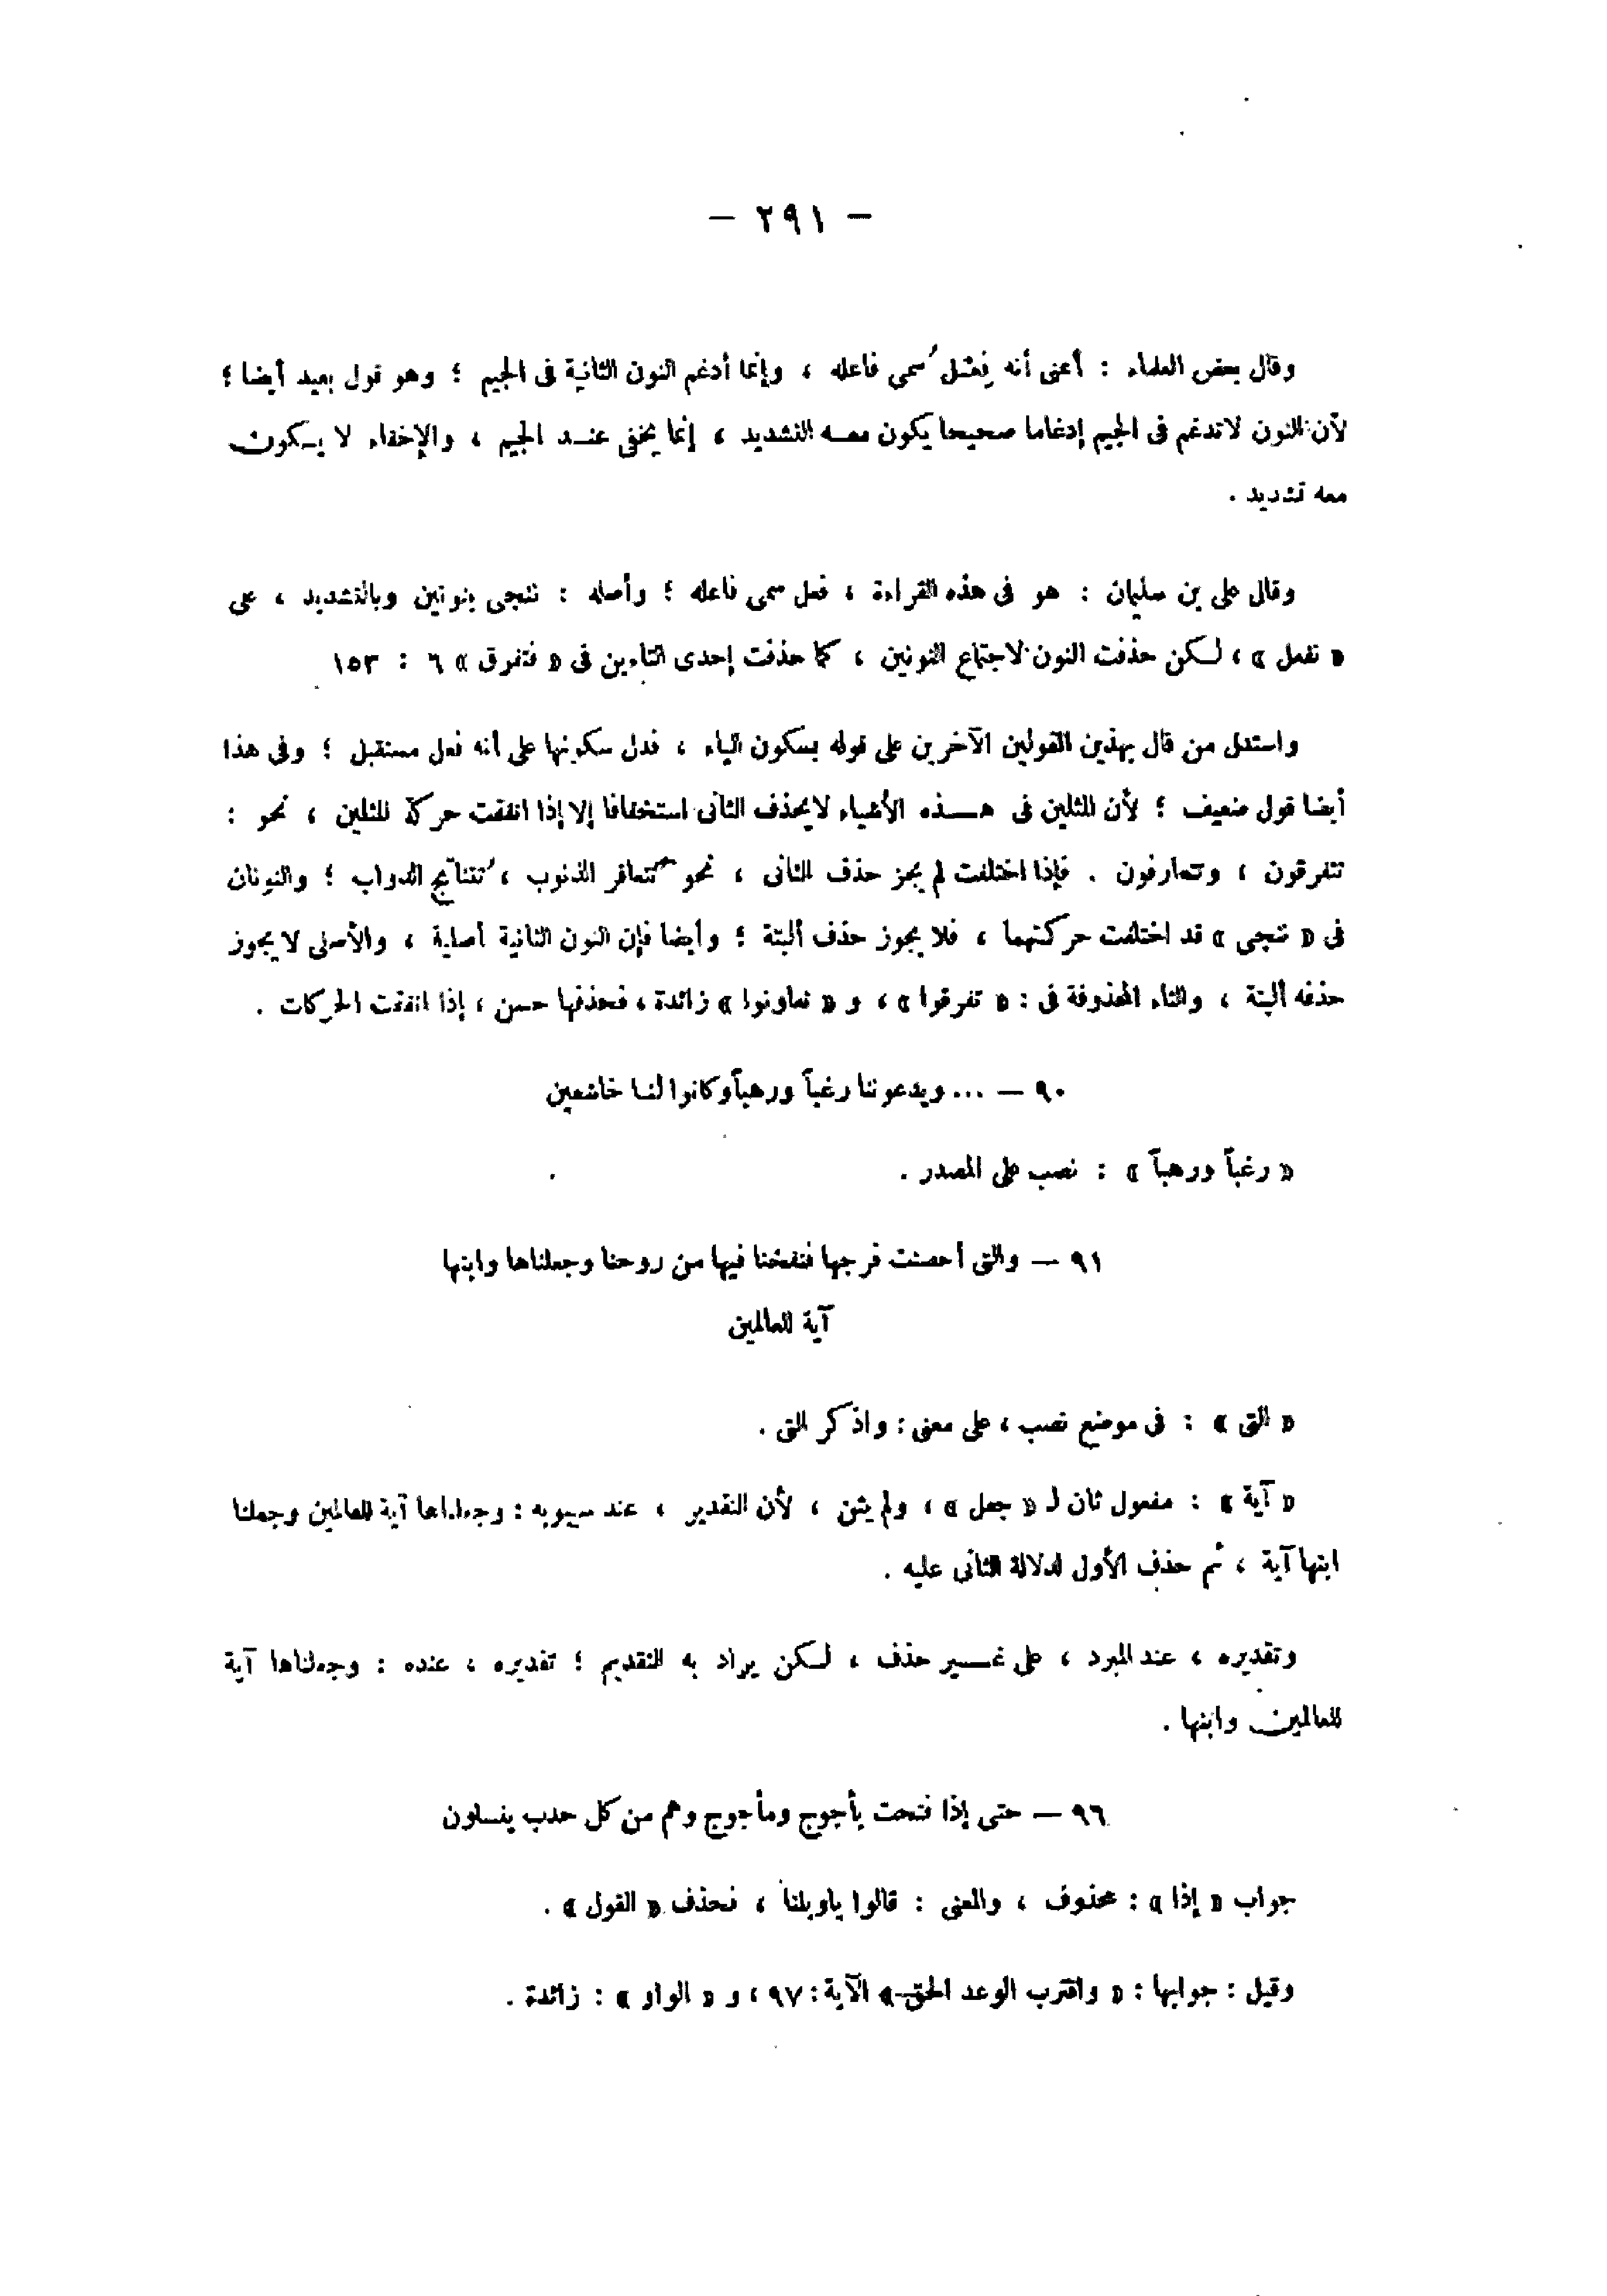 — ٢٩١ —
وقال بعض العلماء : أعنى أنه فِعْل سُمى فاعله ، وإنما أدغم النون الثانية فى الجيم ؛ وهو قول بعيد أيضا ؛
لأن النون لاتدغم فى الجيم إدغاما صحيحا يكون معـه التشديد ، إنما يخفى عنـد الجيم ، والإخفاء لا يـكون
معه تشديد .
وقال على بن سليمان : هو فى هذه القراءة ، فعل سمى فاعله ؛ وأصله : ننجى بنونين وبالتشديد ، على
« نفعل » ، لـكن حذفت النون لاجتماع النونين ، كما حذفت إحدى التاءين فى « فتفرق » ٦ : ١٥٣
واستدل من قال بهذين القولين الآخرين على قوله بسكون الياء ، فدل سكونها على أنه فعل مستقبل ؛ وفى هذا
أيضا قول ضعيف ؛ لأن المثلين فى هـذه الأشياء لايحذف الثانى استخفافا إلا إذا اتفقت حركة المثلين ، نحو :
تتفرقون ، وتتعارفون . فإذا اختلفت لم يجز حذف الثانى ، نحو تُتعافر الذنوب ، تُتناتج الدواب ؛ والنونان
فى « ننجى » قد اختلفت حركتهما ، فلا يجوز حذف ألبتة ؛ وأيضا فإن النون الثانية أصلية ، والأصلى لا يجوز
حذفه ألبتة ، والتاء المحذوفة فى : « تفرقوا » ، و « تعاونوا » زائدة ، فحذفها حسن ، إذا اتفقت الحركات .
٩٠ — ... ويدعوننا رغباً ورهباً وكانوا لنـا خاشعين
« رغباً ورهباً » : نصب على المصدر .
٩١ — والتى أحصنت فرجها فنفخنا فيها من روحنا وجعلناها وابنها
آية للعالمين
« التى » : فى موضع نصب ، على معنى : واذكر التى .
« آية » : مفعول ثان لـ « جعل » ، ولم يثن ، لأن التقدير ، عند سيبويه : وجعلناها آية للعالمين وجعلنا
ابنها آية ، ثم حذف الأول لدلالة الثانى عليه .
وتقديره ، عند المبرد ، على غـير حذف ، لـكن يراد به التقديم ؛ تقديره ، عنده : وجعلناها آية
للعالمين وابنها .
٩٦ — حتى إذا فتحت يأجوج ومأجوج وهم من كل حدب ينسلون
جواب « إذا » : محذوف ، والمعنى : قالوا ياويلنا ، فحذف « القول » .
وقيل : جوابها : « واقترب الوعد الحق » الآية : ٩٧ ، و « الواو » : زائدة .